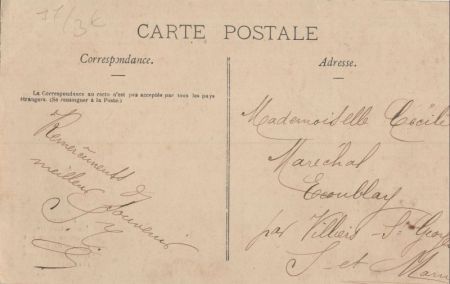 CARTE POSTALE
Correspondance.
La Correspondance au recto n'est pas acceptée par tous les pays
étrangers. (Se renseigner à la Poste.)
Remerciements &
meilleur Souvenir
Adresse.
Mademoiselle Cécile
Maréchal
Ecoublay
par Villiers-St Georges
S. et Marne